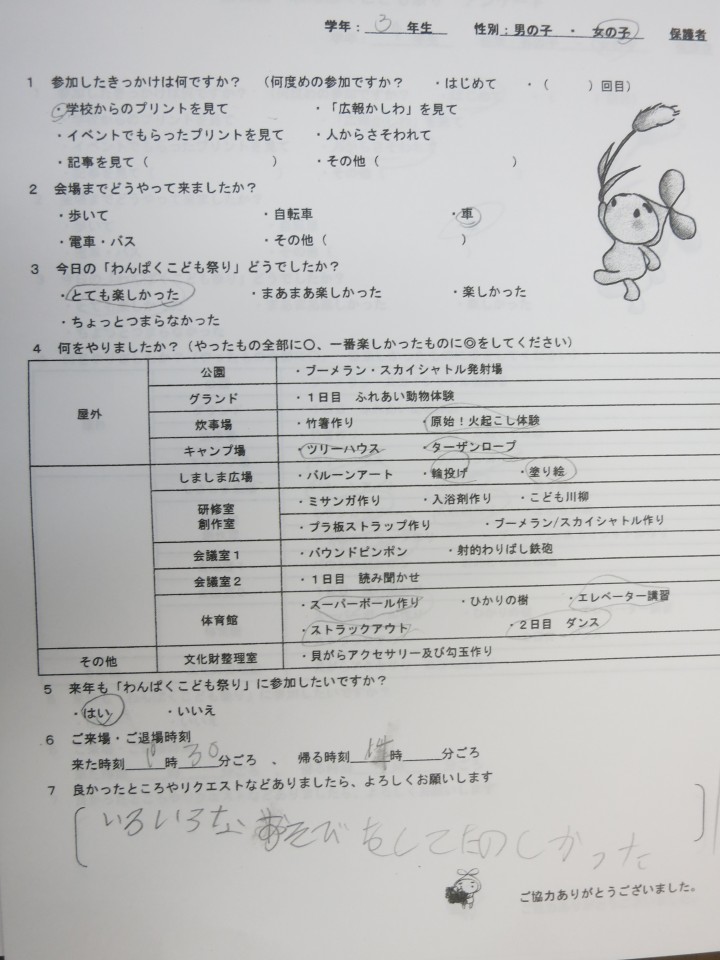 学年：３年生　性別：男の子　・　女の子　保護者
１　参加したきっかけは何ですか？　（何度めの参加ですか？　・はじめて　・（　　）回目）
・学校からのプリントを見て　・「広報かしわ」を見て
・イベントでもらったプリントを見て　・人からさそわれて
・記事を見て（　　　）　・その他（　　　）
２　会場までどうやって来ましたか？
・歩いて　・自転車　・車
・電車・バス　・その他（　　　）
３　今日の「わんぱくこども祭り」どうでしたか？
・とても楽しかった　・まあまあ楽しかった　・楽しかった
・ちょっとつまらなかった
４　何をやりましたか？（やったもの全部に○、一番楽しかったものに◎をしてください）
屋外　公園　・ブーメラン・スカイシャトル発射場
グランド　・１日目　ふれあい動物体験
炊事場　・竹箸作り　・原始！火起こし体験
キャンプ場　・ツリーハウス　・ターザンロープ
しましま広場　・バルーンアート　・輪投げ　・塗り絵
研修室　・ミサンガ作り　・入浴剤作り　・こども川柳
創作室　・プラ板ストラップ作り　・ブーメラン/スカイシャトル作り
会議室１　・バウンドピンポン　・射的わりばし鉄砲
会議室２　・１日目　読み聞かせ
体育館　・スーパーボール作り　・ひかりの樹　・エレベーター講習
・ストラックアウト　・２日目　ダンス
その他　文化財整理室　・貝がらアクセサリー及び勾玉作り
５　来年も「わんぱくこども祭り」に参加したいですか？
・はい　・いいえ
６　ご来場・ご退場時刻
来た時刻　時30分ごろ　、　帰る時刻　時　分ごろ
７　良かったところやリクエストなどありましたら、よろしくお願いします
いろいろなあそびをしてたのしかった
ご協力ありがとうございました。